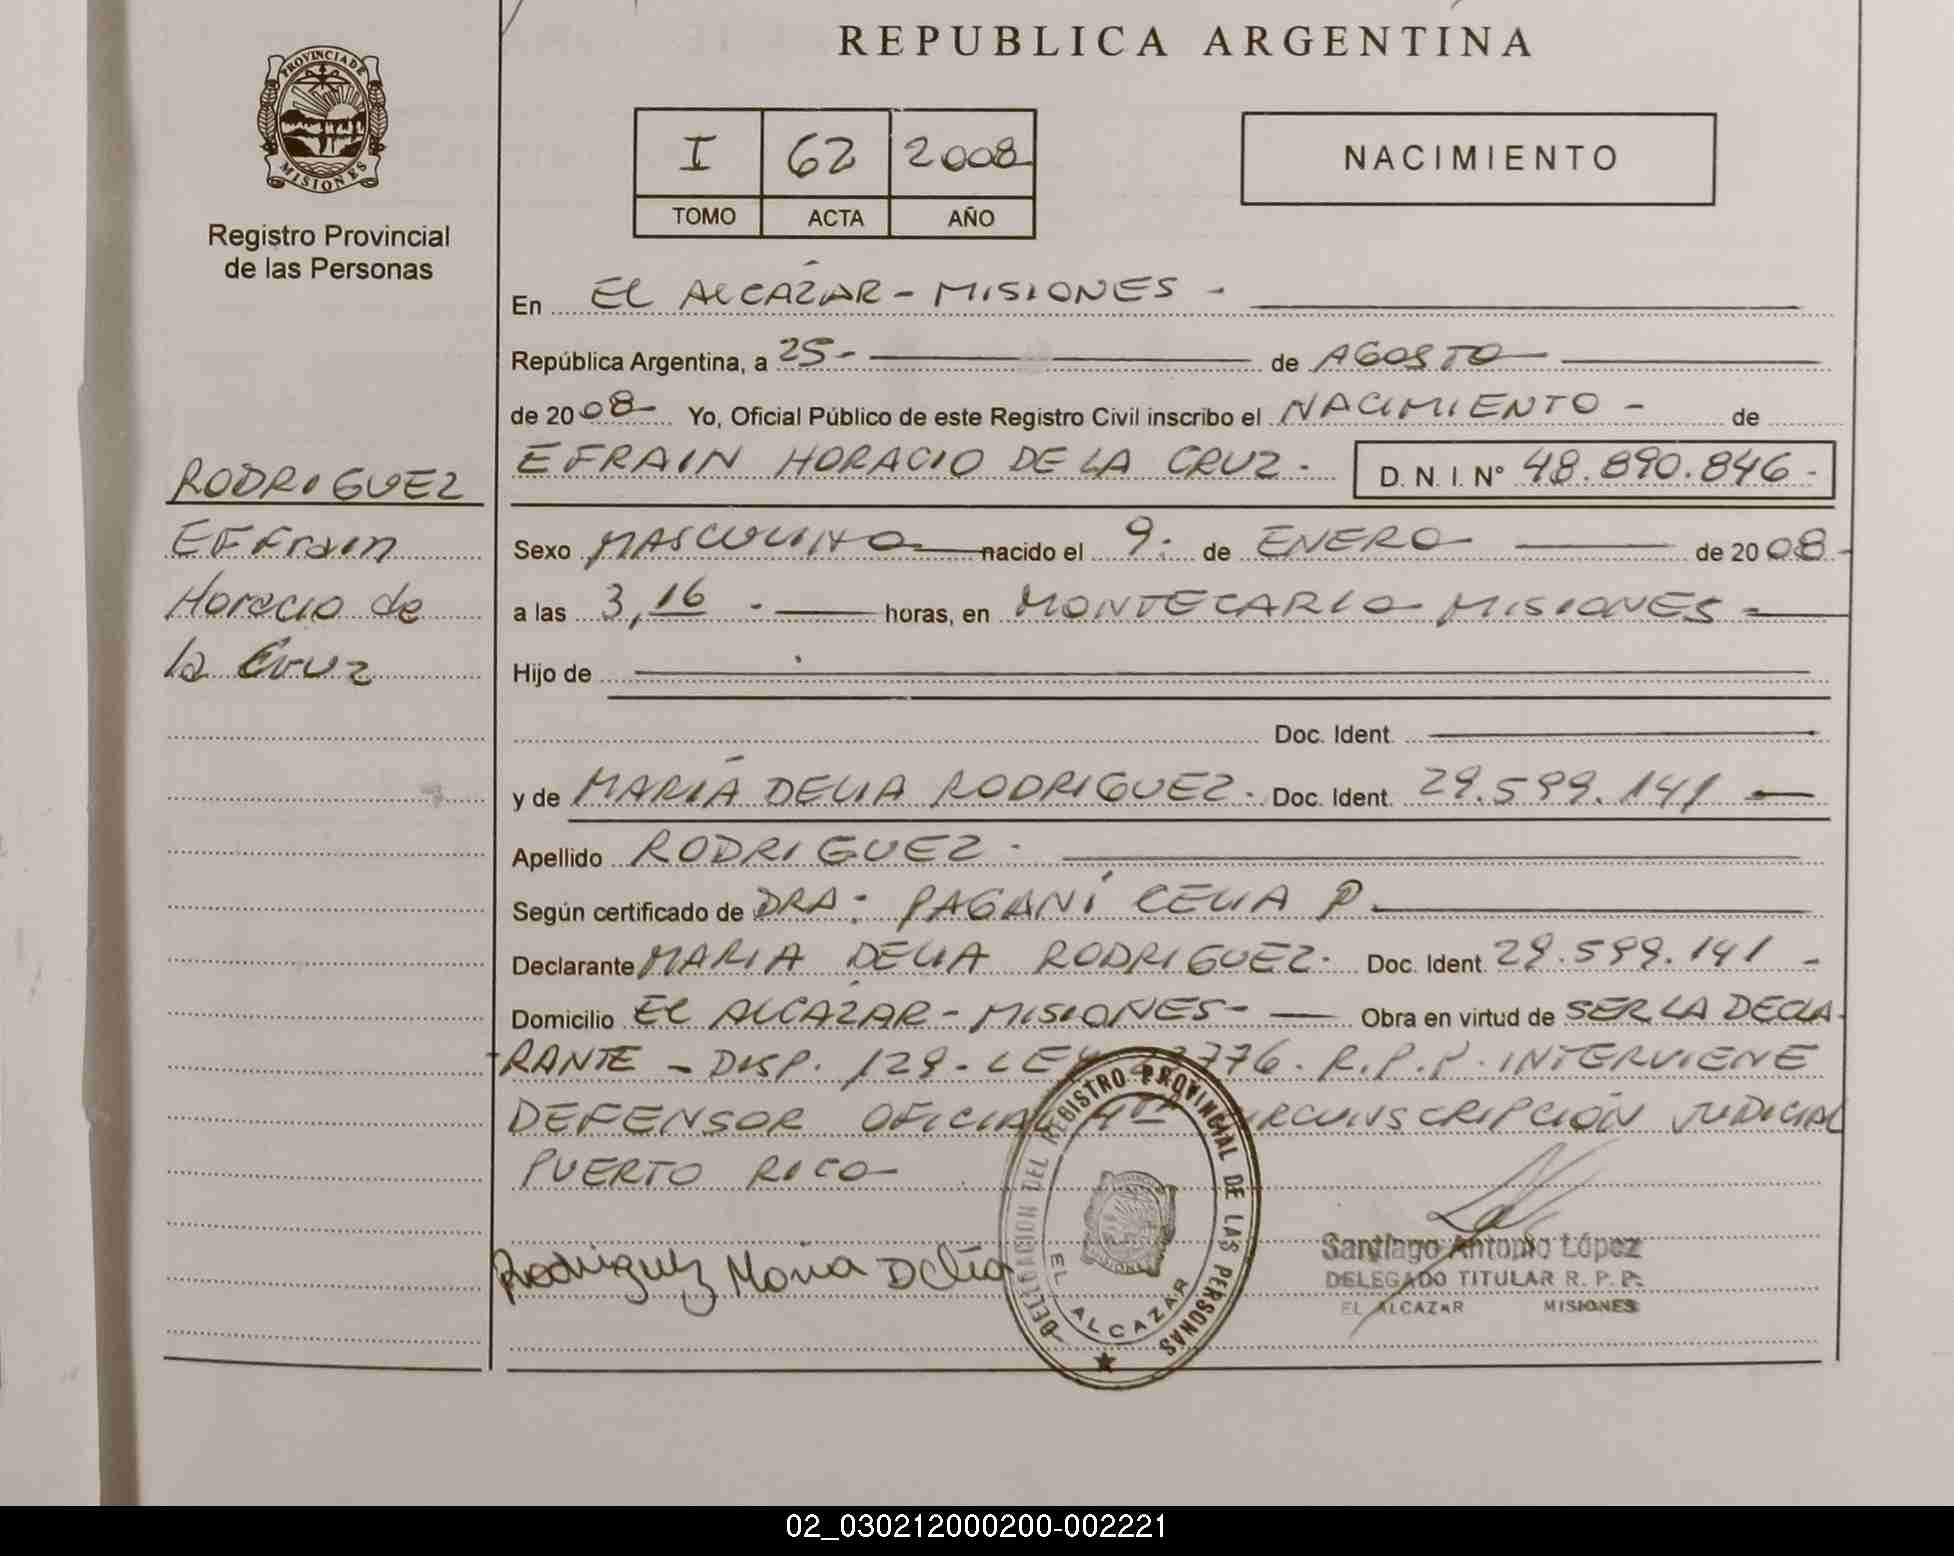 PROVINCIA DE
MISIONES
Registro Provincial
de las Personas
RODRIGUEZ
EFFrain
Horacio de
la Cruz
REPUBLICA ARGENTINA
I 62 2008
TOMO ACTA AÑO
NACIMIENTO
En EL ALCÁZAR - MISIONES -
República Argentina, a 25 - de AGOSTO
de 2008 Yo, Oficial Público de este Registro Civil inscribo el NACIMIENTO - de
EFRAIN HORACIO DE LA CRUZ - D. N. I. Nº 48.890.846 -
Sexo MASCULINO nacido el 9. de ENERO de 2008 -
a las 3,16 - horas, en MONTECARLO MISIONES -
Hijo de
Doc. Ident.
y de MARÍA DELIA RODRIGUEZ - Doc. Ident. 29.599.141
Apellido RODRIGUEZ -
Según certificado de DRA: PAGANÍ CELIA P.
Declarante MARIA DELIA RODRIGUEZ - Doc. Ident. 29.599.141 -
Domicilio EL ALCÁZAR - MISIONES - Obra en virtud de SER LA DECLA-
RANTE - DISP. 129 - LEY 776 - R.P.P. INTERVIENE
DEFENSOR OFICIAL 4ta CIRCUNSCRIPCIÓN JUDICIAL
PUERTO RICO
Rodriguez Maria Delia
DELEGACION DEL REGISTRO PROVINCIAL DE LAS PERSONAS
EL ALCAZAR
Santiago Antonio López
DELEGADO TITULAR R. P. P.
EL ALCAZAR MISIONES
02_030212000200-002221